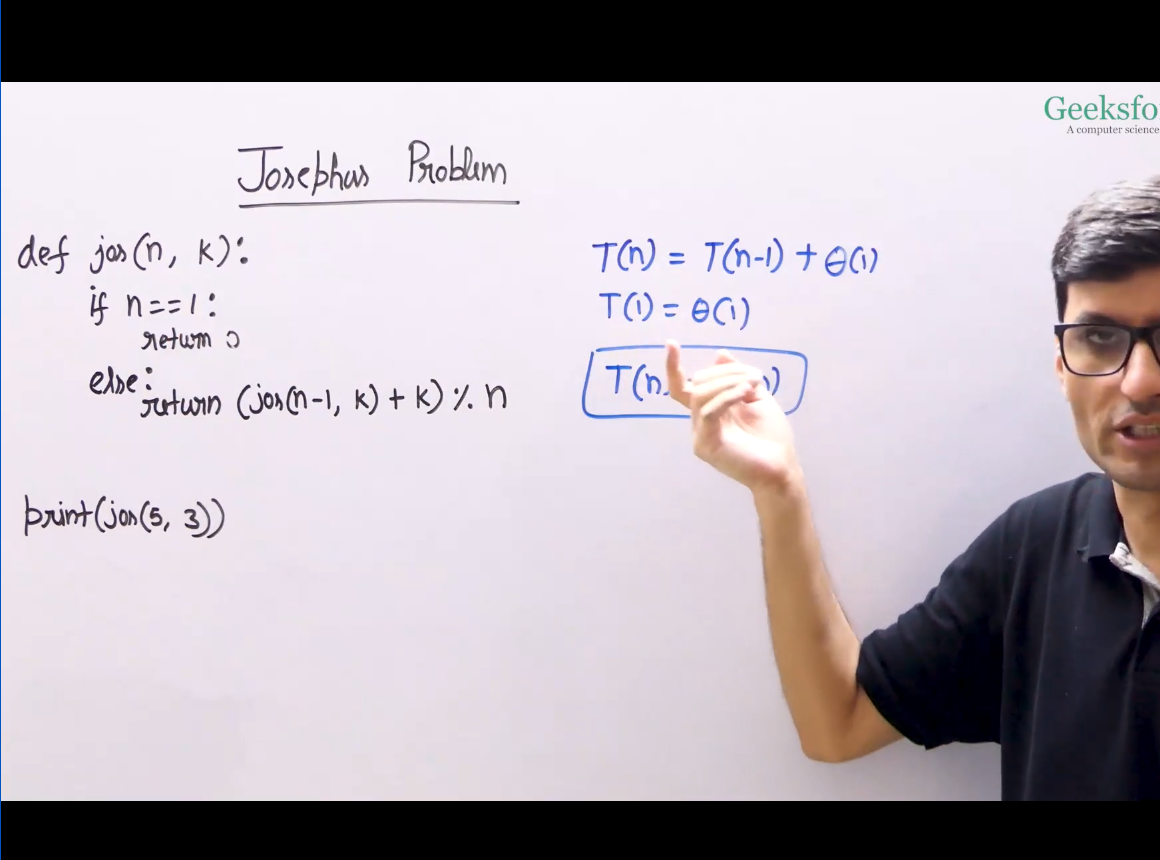 Geeksfo
A computer science
Josephus Problem
def jos(n, k):
if n==1:
return 0
else:
return (jos(n-1, k) + k) % n
print(jos(5, 3))
T(n) = T(n-1) + θ(1)
T(1) = θ(1)
T(n)